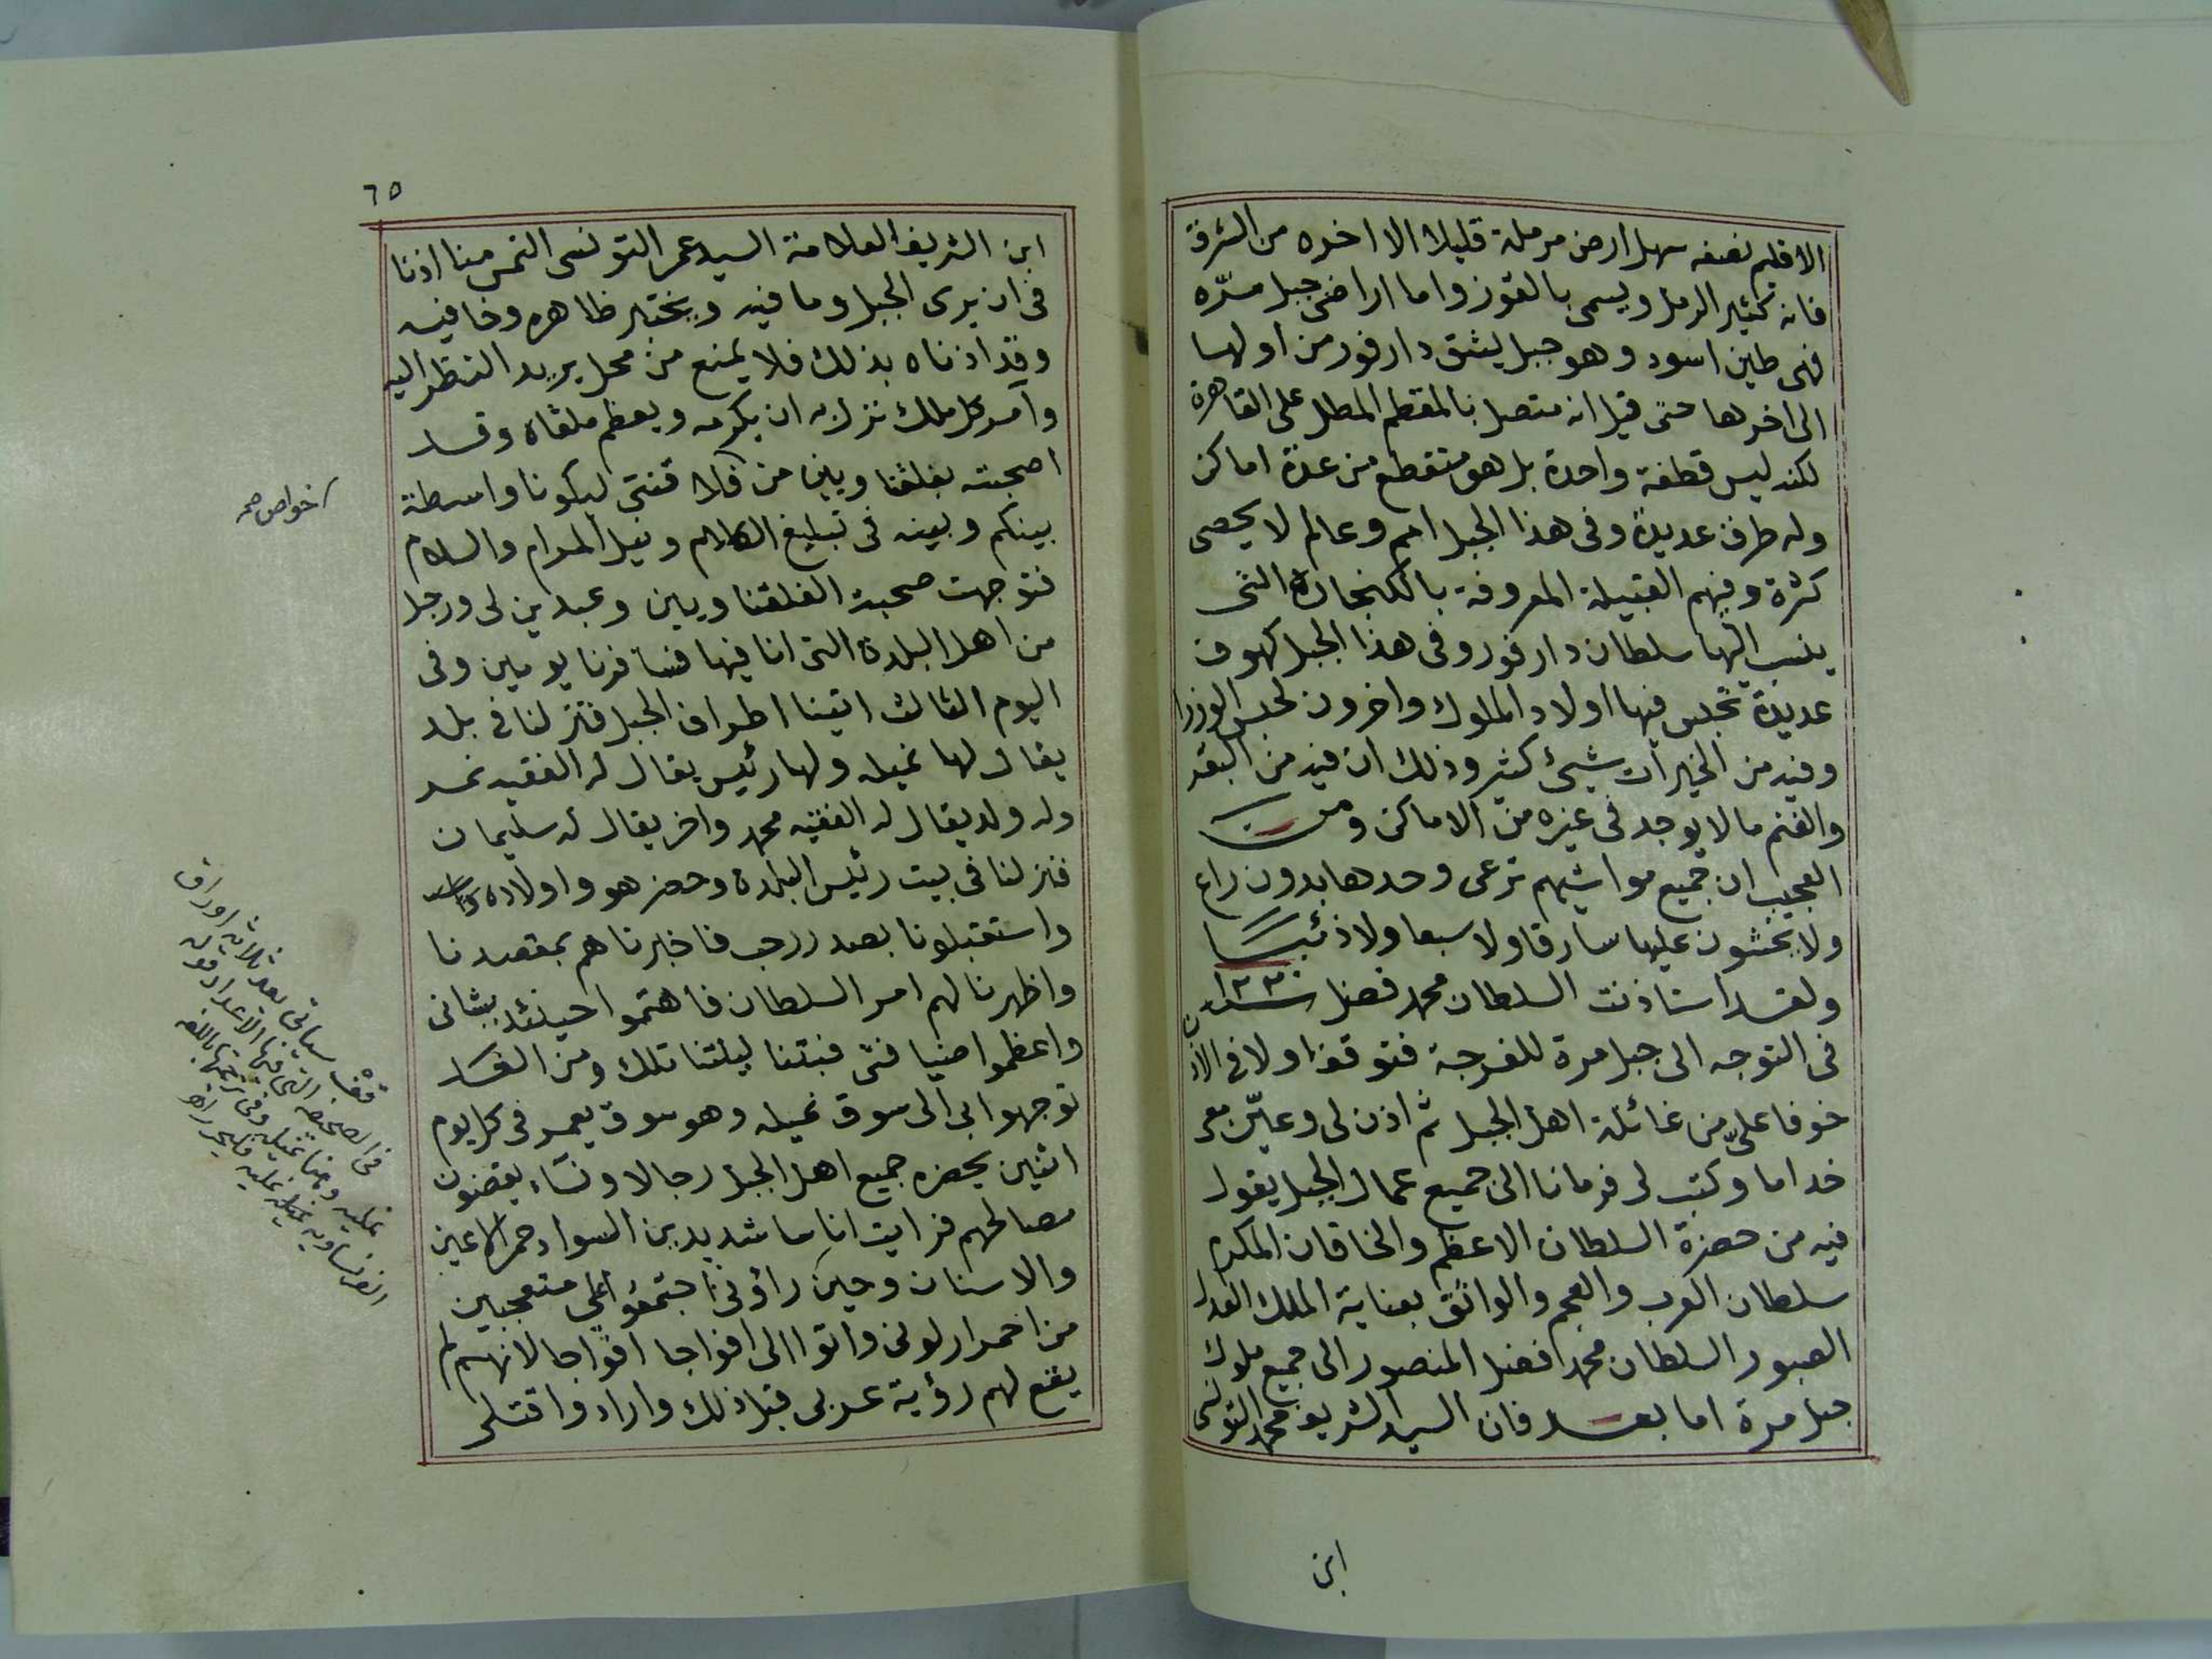 الاقليم نصفه سهل ارض مرملة قليلا الا اخره من الشرق
فانه كثير الرمل ويسمى بالقوز واما اراضى جبل مرّه
فهى طين اسود وهو جبل يشق دارفور من اولها
الى اخرها حتى قيل انه متصل بالمقطم المطل على القاهرة
لكنه ليس قطعة واحدة بل هو متقطع من عدة اماكن
وله طرق عديدة وفى هذا الجبل امم وعالم لا يحصى
كثرة وفيهم القبيلة المعروفة بالكنجارة التى
ينسب اليها سلطان دارفور وفى هذا الجبل كهوف
عديدة تحبس فيها اولاد الملوك واخرون لحبس الوزرا
وفيه من الخيرات شيئ كثير وذلك ان فيه من البقر
والغنم ما لا يوجد فى غيره من الاماكن ومن
العجيب ان جميع مواشيهم ترعى وحدها بدون راع
ولا يخشون عليها سارقا ولا سبعا ولا ذئبا
ولقد استاذنت السلطان محمد فضل سنة
فى التوجه الى جبل مرة للفرجة فتوقف اولا فى الاذن
خوفا علىّ من غائلة اهل الجبل ثم اذن لى وعيّن معى
خداما وكتب لى فرمانا الى جميع عمال الجبل يقول
فيه من حضرة السلطان الاعظم والخاقان المكرم
سلطان العرب والعجم والواثق بعناية الملك العدل
الصبور السلطان محمد فضل المنصور الى جميع ملوك
جبل مرة اما بعد فان السيد الشريف محمد التونسى
ابن
٦٥
ابن الشريف العلامة السيد عمر التونسى التمس منا اذنا
فى ان يرى الجبل وما فيه ويختبر ظاهره وخافيه
وقد اذناه بذلك فلا يمنع من محل يريد النظر اليه
وآمر كل ملك نزل به ان يكرمه ويعظم ملقاه وقد
اصحبته بفلقنا ويين من فلاقنتى ليكونا واسطة
بينكم وبينه فى تبليغ الكلام ونيل المرام والسلام
فتوجهت صحبة الفلقنا ويين وعبدين لى ورجل
من اهل البلدة التى انا فيها فسافرنا يومين وفى
اليوم الثالث اتينا اطراف الجبل فنزلنا فى بلد
يقال لها نميله ولها رئيس يقال له الفقيه نمر
وله ولد يقال له الفقيه محمد واخر يقال له سليمان
فنزلنا فى بيت رئيس البلدة وحضر هو واولاده
واستقبلونا بصدر رحب فاخبرناهم بمقصدنا
واظهرنا لهم امر السلطان فاهتموا حينئد بشانى
واعظموا ضيافتى فبتنا ليلتنا تلك ومن الغد
توجهوا بى الى سوق نميله وهو سوق يعمر فى كل يوم
اثنين يحضره جميع اهل الجبل رجالا ونساء يقضون
مصالحهم فرايت اناسا شديدين السواد حمر الاعين
والاسنان وحين راؤنى اجتمعوا على متعجبين
من احمرار لونى واتوا الى افواجا افواجا لانهم لم
يقع لهم رؤية عربى قبل ذلك وارادوا قتلى
خواص صح
سياتى بعد ثلاثه اوراق